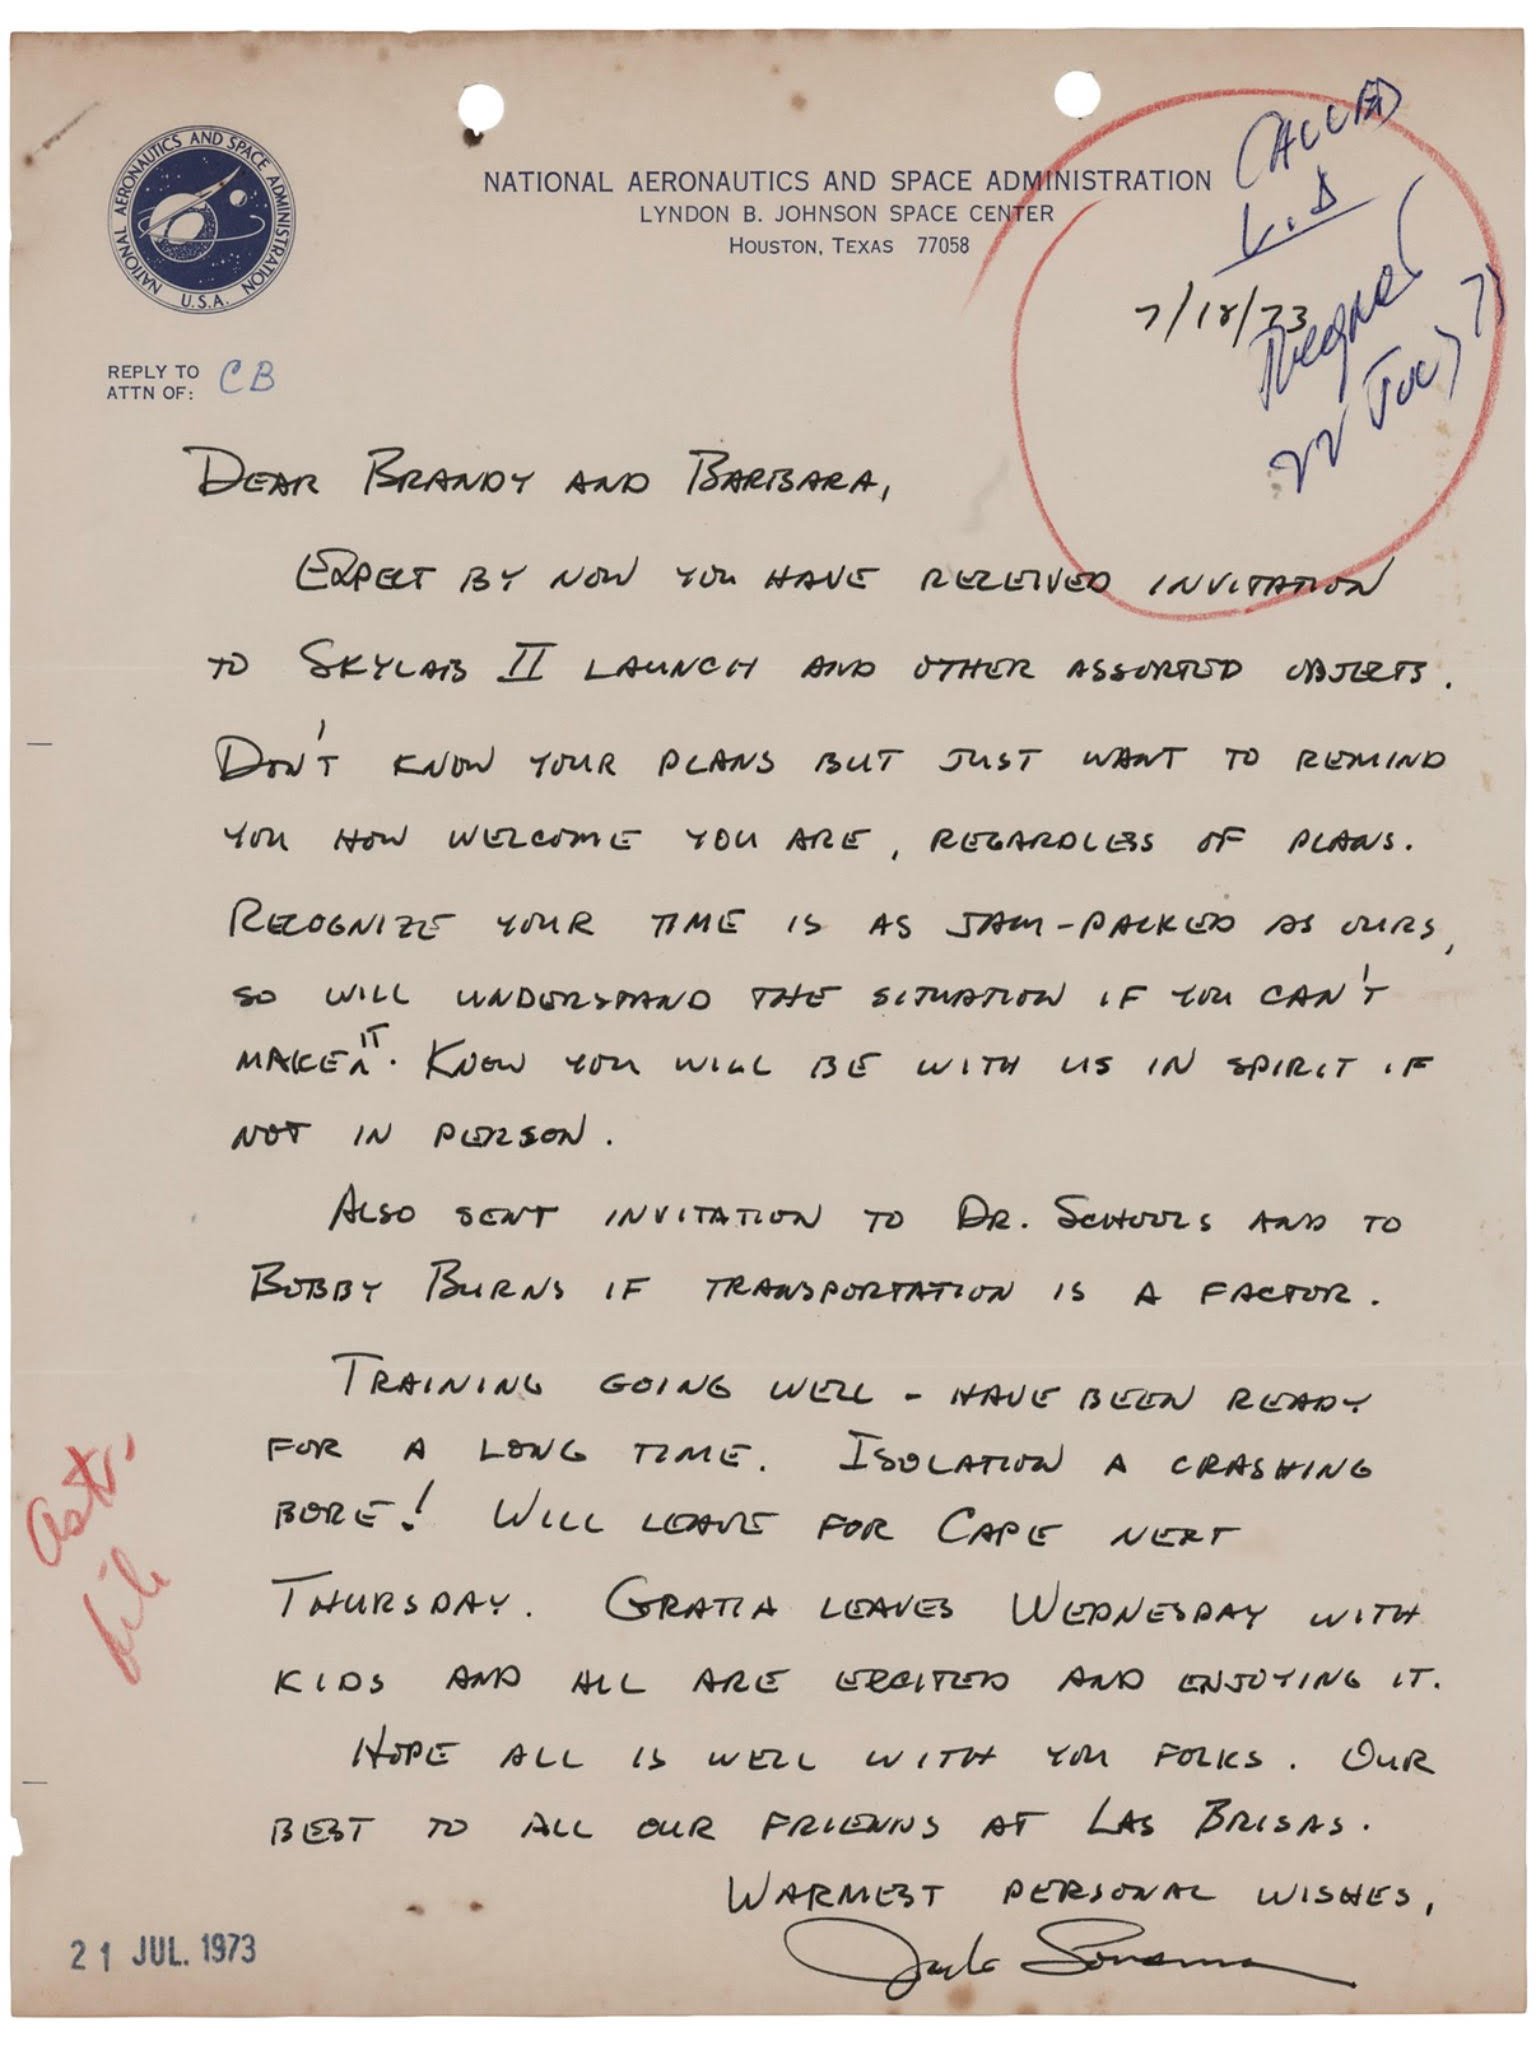 NATIONAL AERONAUTICS AND SPACE ADMINISTRATION
U.S.A.
NATIONAL AERONAUTICS AND SPACE ADMINISTRATION
LYNDON B. JOHNSON SPACE CENTER
HOUSTON, TEXAS 77058
CALLED
7/18/73
22 July 73
REPLY TO
ATTN OF: CB
DEAR BRANDY AND BARBARA,
EXPECT BY NOW YOU HAVE RECEIVED INVITATION
TO SKYLAB II LAUNCH AND OTHER ASSORTED OBJECTS.
DON'T KNOW YOUR PLANS BUT JUST WANT TO REMIND
YOU HOW WELCOME YOU ARE, REGARDLESS OF PLANS.
RECOGNIZE YOUR TIME IS AS JAM-PACKED AS OURS,
SO WILL UNDERSTAND THE SITUATION IF YOU CAN'T
MAKE IT. KNOW YOU WILL BE WITH US IN SPIRIT IF
NOT IN PERSON.
ALSO SENT INVITATION TO DR. SCHOOLS AND TO
BOBBY BURNS IF TRANSPORTATION IS A FACTOR.
TRAINING GOING WELL - HAVE BEEN READY
FOR A LONG TIME. ISOLATION A CRASHING
BORE! WILL LEAVE FOR CAPE NEXT
THURSDAY. GRATIA LEAVES WEDNESDAY WITH
KIDS AND ALL ARE EXCITED AND ENJOYING IT.
HOPE ALL IS WELL WITH YOU FOLKS. OUR
BEST TO ALL OUR FRIENDS AT LAS BRISAS.
WARMEST PERSONAL WISHES,
Jack Lousma
astr.
file
21 JUL. 1973